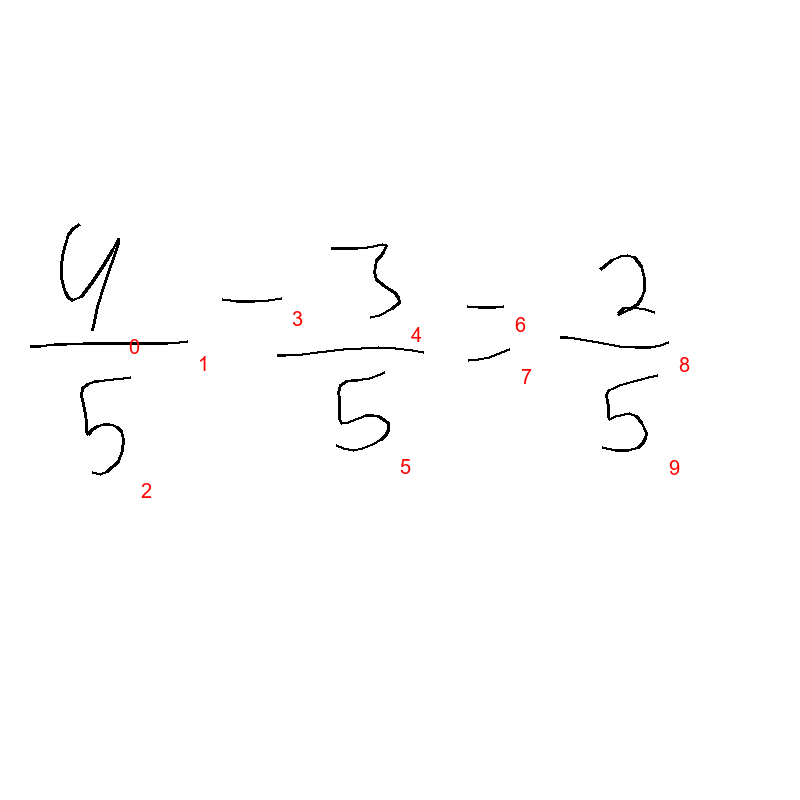 4/5 - 3/5 = 2/5
0 1 2 3 4 5 6 7 8 9